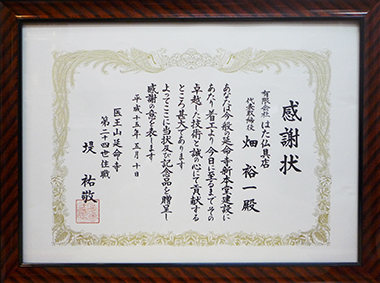 感謝状
有限会社 はた仏具店
代表取締役 畑 裕一殿
あなたは今般の延命寺新本堂建設に
あたり着工より今日に至るまでその
卓越した技術と誠の心にて貢献する
ところ甚大であります
よってここに当状及び記念品を贈呈し
感謝の意を表します
平成十五年五月十日
医王山延命寺
第二十四世住職
堤 祐敬